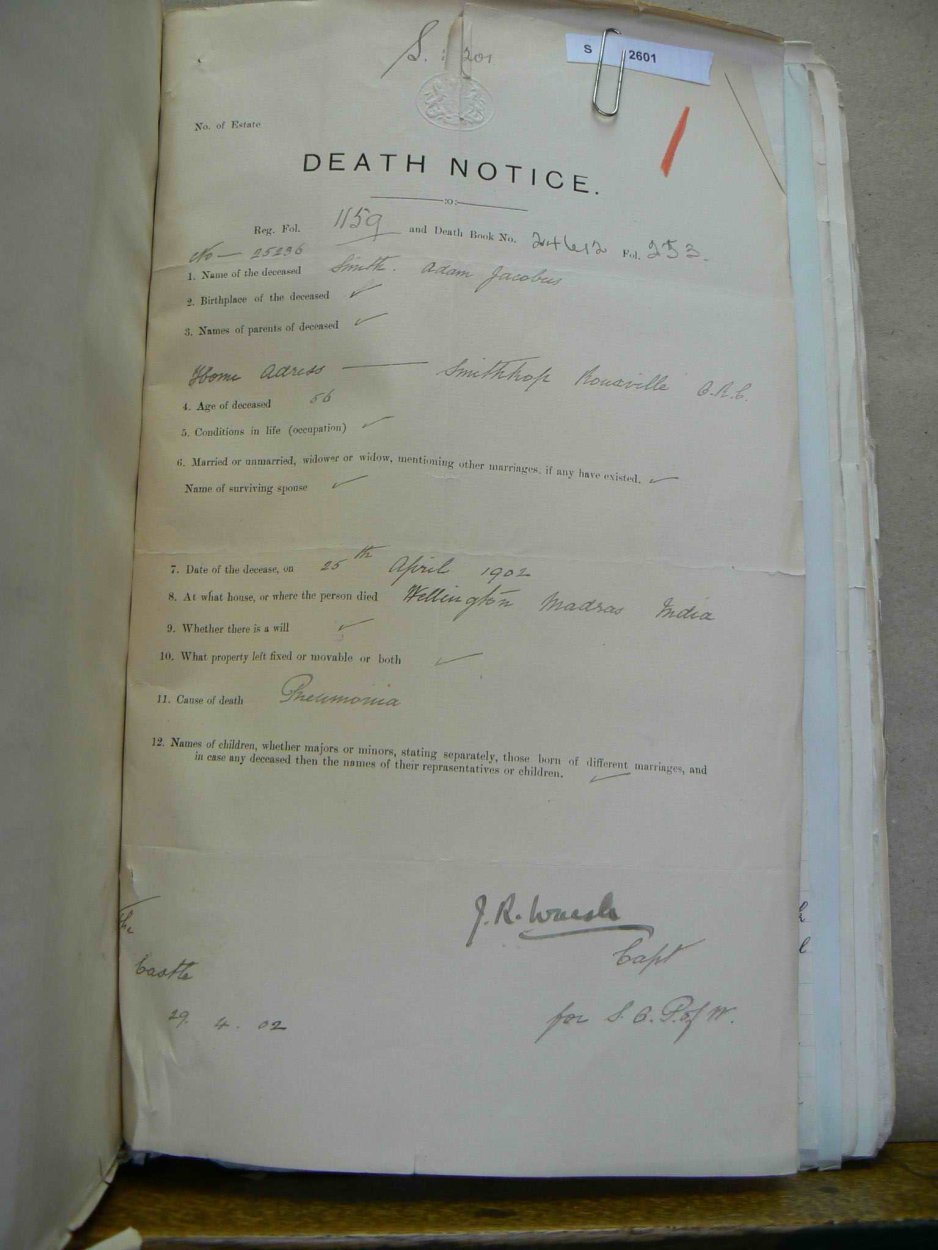 S. 201
S 2601
No. of Estate
DEATH NOTICE.
Reg. Fol. 1159 and Death Book No. 24612 Fol. 253.
No — 25236
1. Name of the deceased Smith. Adam Jacobus
2. Birthplace of the deceased ✓
3. Names of parents of deceased ✓
Home Adress — Smithkop Rouxville O.R.C.
4. Age of deceased 56
5. Conditions in life (occupation) ✓
6. Married or unmarried, widower or widow, mentioning other marriages, if any have existed. ✓
Name of surviving spouse ✓
7. Date of the decease, on 25th April 1902
8. At what house, or where the person died Wellington Madras India
9. Whether there is a will ✓
10. What property left fixed or movable or both ✓
11. Cause of death Pneumonia
12. Names of children, whether majors or minors, stating separately, those born of different marriages, and
in case any deceased then the names of their representatives or children. ✓
J. R.
The
Capt
Castle
29. 4. 02
for S. O. P. of W.